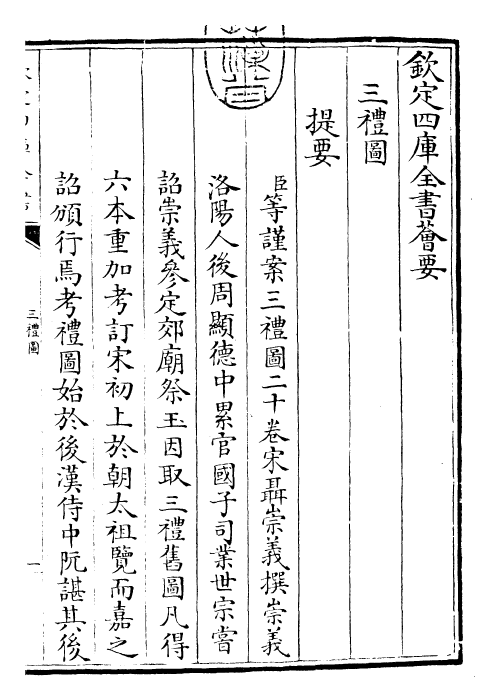 欽定四庫全書薈要
三禮圖
提要
臣等謹案三禮圖二十卷宋聶崇義撰崇義
洛陽人後周顯德中累官國子司業世宗嘗
詔崇義參定郊廟祭玉因取三禮舊圖凡得
六本重加考訂宋初上於朝太祖覽而嘉之
詔頒行焉考禮圖始於後漢侍中阮諶其後
三禮圖
一